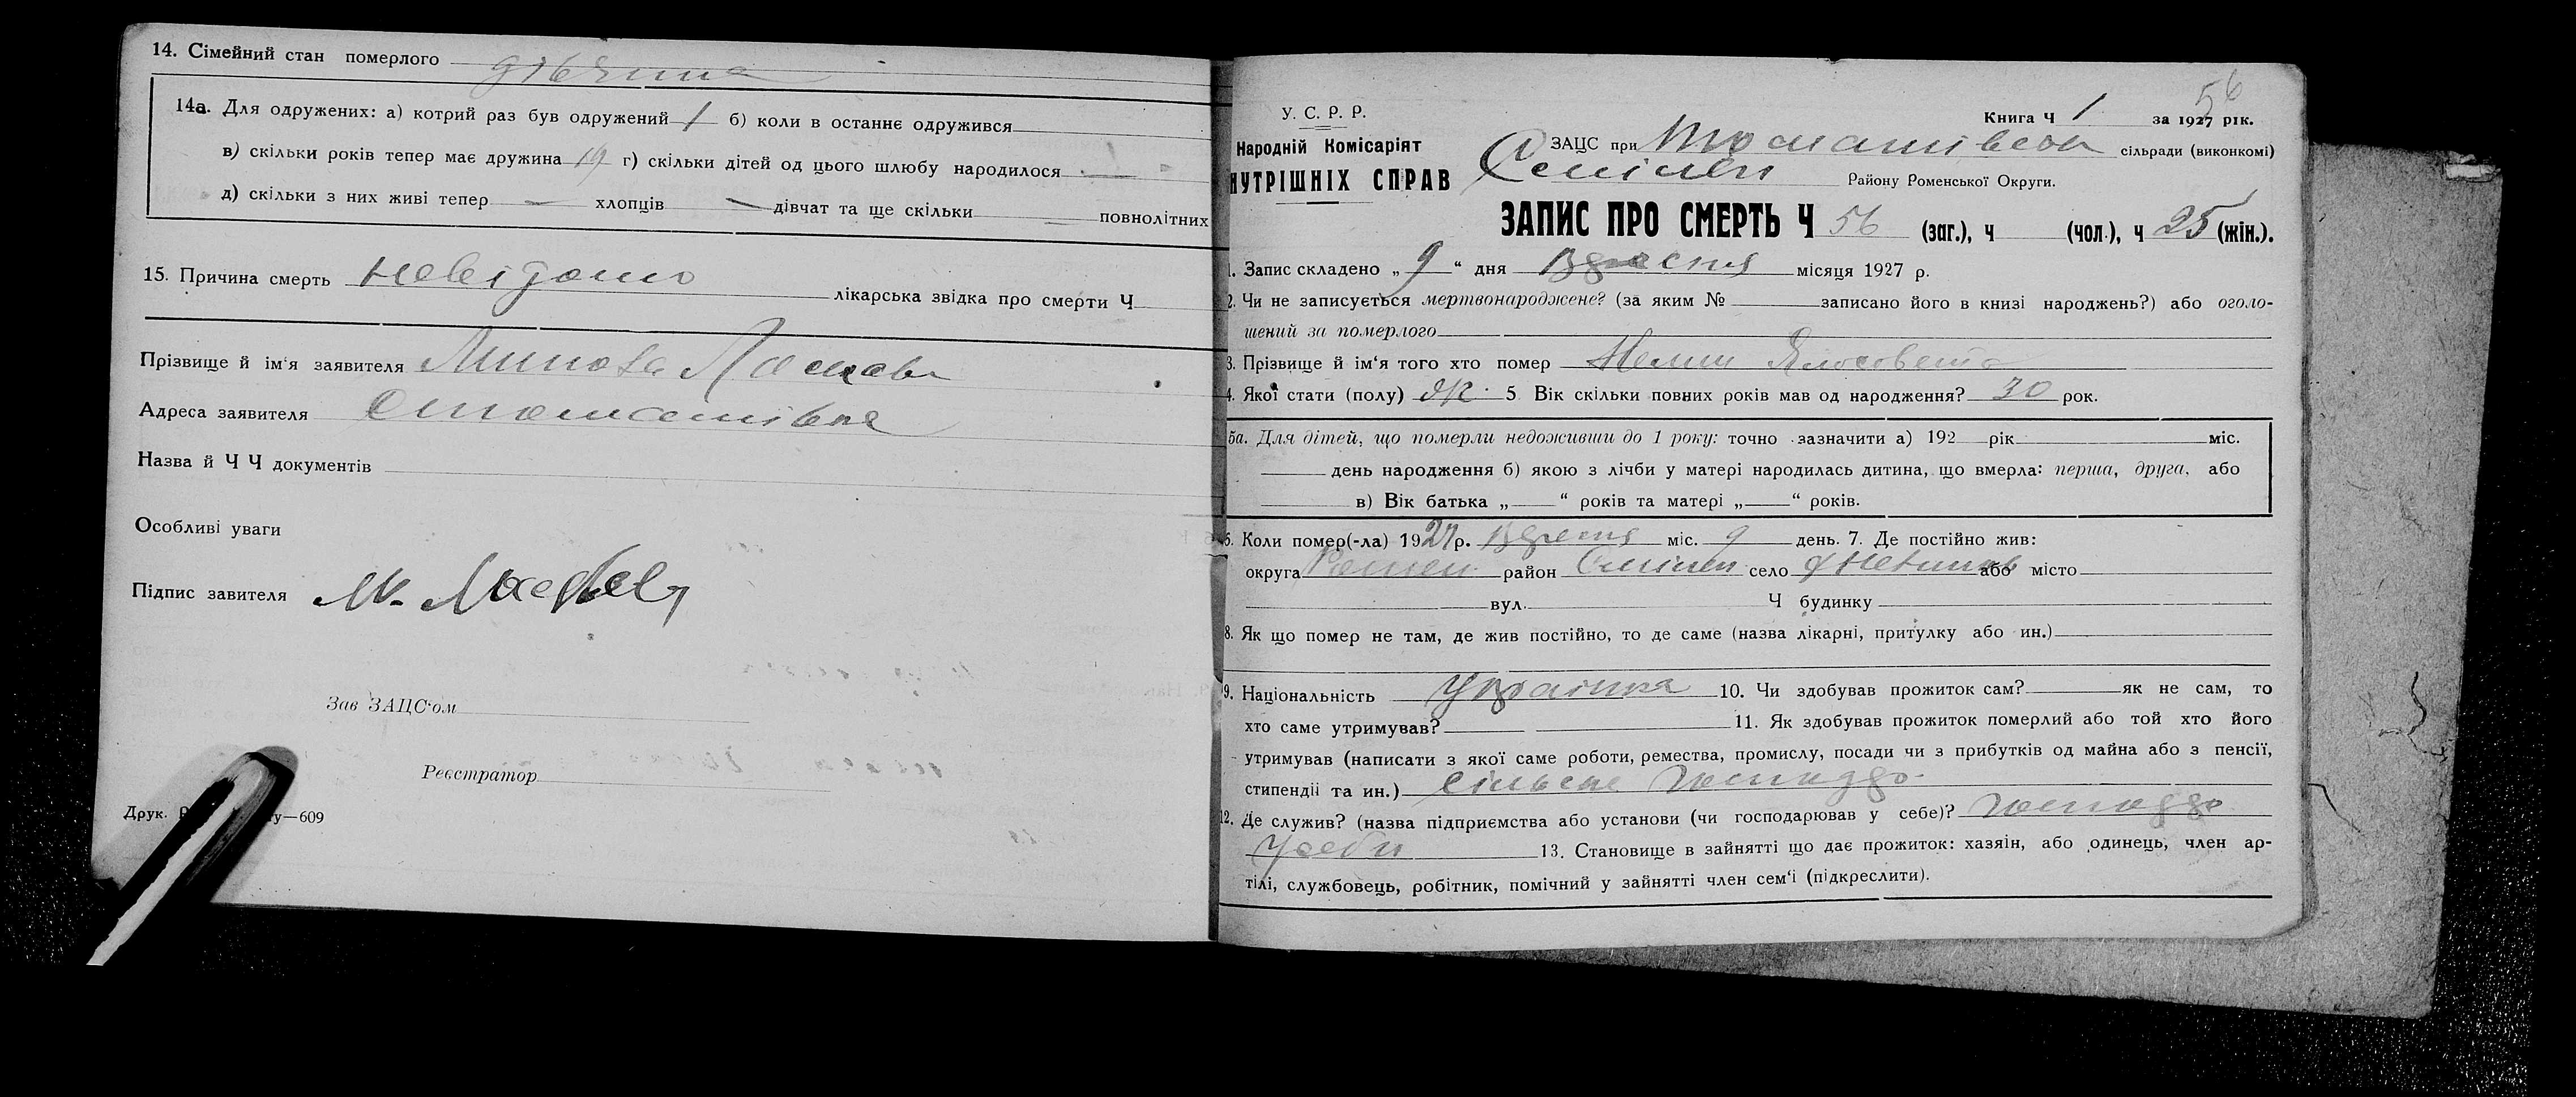 14. Сімейний стан померлого дівчина
14а. Для одружених: а) котрий раз був одружений 1 б) коли в останнє одружився
в) скільки років тепер має дружина 19 г) скільки дітей од цього шлюбу народилося
д) скільки з них живі тепер — хлопців — дівчат та ще скільки — повнолітних
15. Причина смерть невідомо лікарська звідка про смерти Ч
Прізвище й ім‘я заявителя
Адреса заявителя
Назва й Ч Ч документів
Особливі уваги
Підпис завителя М.
Зав ЗАЦС‘ом
Реєстратор
Друк. ту—609
56
У. С. Р. Р.
Книга Ч 1 за 1927 рік.
Народній Комісаріят
ЗАЦС при сільради (виконкомі)
НУТРІШНІХ СПРАВ
Району Роменської Округи.
ЗАПИС ПРО СМЕРТЬ Ч 56 (заг.), ч (чол.), ч 25 (жін.).
1. Запис складено „ 9 “ дня Вересня місяця 1927 р.
2. Чи не записується мертвонароджене? (за яким № записано його в книзі народжень?) або оголо-
шений за померлого
3. Прізвище й ім‘я того хто помер
4. Якої стати (полу) ж. 5 Вік скільки повних років мав од народження? 30 рок.
5а. Для дітей, що померли недоживши до 1 року: точно зазначити а) 192 рік міс.
день народження б) якою з лічби у матері народилась дитина, що вмерла: перша, друга, або
в) Вік батька „ “ років та матері „ “ років.
6. Коли помер(-ла) 1927 р. Вересня міс. 9 день. 7. Де постійно жив:
округа Ромен район село або місто
вул. Ч будинку
8. Як що помер не там, де жив постійно, то де саме (назва лікарні, притулку або ин.)
9. Національність Українка 10. Чи здобував прожиток сам? як не сам, то
хто саме утримував? 11. Як здобував прожиток померлий або той хто його
утримував (написати з якої саме роботи, ремества, промислу, посади чи з прибутків од майна або з пенсії,
стипендії та ин.) сільске
12. Де служив? (назва підприємства або установи (чи господарював у себе)?
у себи 13. Становище в зайнятті що дає прожиток: хазяїн, або одинець, член ар-
тілі, службовець, робітник, помічний у зайнятті член сем‘ї (підкреслити).